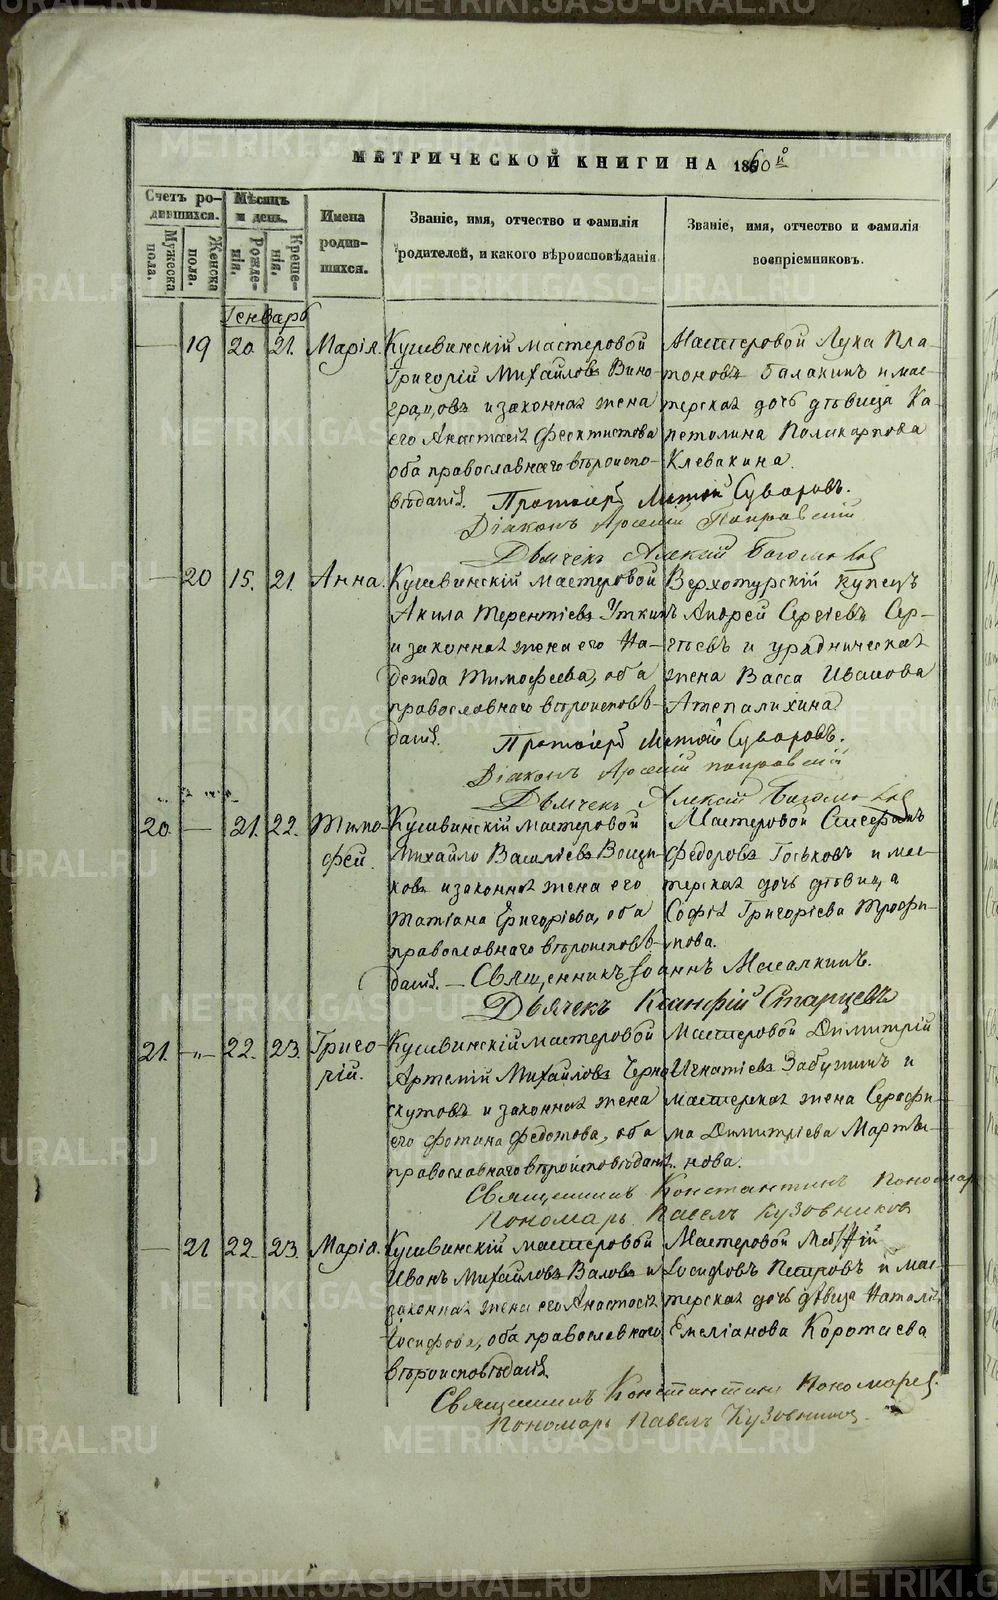 МЕТРИЧЕСКОЙ КНИГИ НА 1860й
Счетъ ро-
дившихся.
Мужеска
пола.
Женска
пола.
Мѣсяцъ
и день.
Рожде-
нія.
Креще-
нія.
Имена
родив-
шихся.
Званіе, имя, отчество и фамилія
родителей, и какого вѣроисповѣданія
Званіе, имя, отчество и фамилія
воспріемниковъ.
Генварь
19 20 21. Марія. Кушвинскій мастеровой
Григорій Михайловъ Вино-
градовъ и законная жена
его Анастасія Феоктистова
оба православнаго вѣроиспо-
вѣданія.
Мастеровой Лука Пла-
тоновъ Балакинъ и мас-
терская дочь дѣвица Ка-
петолина Поликарпова
Клевакина.
Протоіерей Суворовъ.
Діаконъ Арсеній
Дьячекъ Алексій
20 15. 21. Анна. Кушвинскій мастеровой
Акила Терентіевъ Уткинъ
и законная жена его На-
дежда Тимофеева, оба
православнаго вѣроисповѣ-
данія.
Верхотурскій купецъ
Андрей Сергіевъ Сер-
гѣевъ и урядническая
жена Васса Иванова
Атепалихина
Протоіерей Суворовъ.
Діаконъ Арсеній
Дьячекъ Алексій
20 — 21. 22. Тимо-
фей.
Кушвинскій мастеровой
Михайло Васильевъ Вощи-
ковъ и законная жена его
Татіана Григоріева, оба
православнаго вѣроисповѣ-
данія.
Мастеровой
Федоровъ Госьковъ и мас-
терская дочь дѣвица
Софія Григоріева Трофи-
мова.
Священникъ Іоаннъ Масалкинъ.
Дьячекъ Ксанфій Старцевъ
21. —„— 22. 23. Григо-
рій.
Кушвинскій мастеровой
Артемій Михайловъ Черно-
скутовъ и законная жена
его Фотина Федотова, оба
православнаго вѣроисповѣданія.
Мастеровой Димитрій
Игнатіевъ Забушинъ и
мастерская жена Серафи-
ма Димитріева Мартьи-
нова.
Священникъ Константинъ Пономар
Пономарь Павелъ Кузовниковъ
— 21 22. 23. Марія. Кушвинскій мастеровой
Иванъ Михайловъ Валовъ и
законная жена его Анастасія
Іосифова, оба православнаго
вѣроисповѣданія.
Мастеровой Матѳій
Іосифовъ Петровъ и мас-
терская дочь дѣвица Наталія
Емеліанова Коротаева
Священникъ Константинъ Пономарев.
Пономарь Павелъ Кузовниковъ.
METRIKI.GASO-URAL.RU